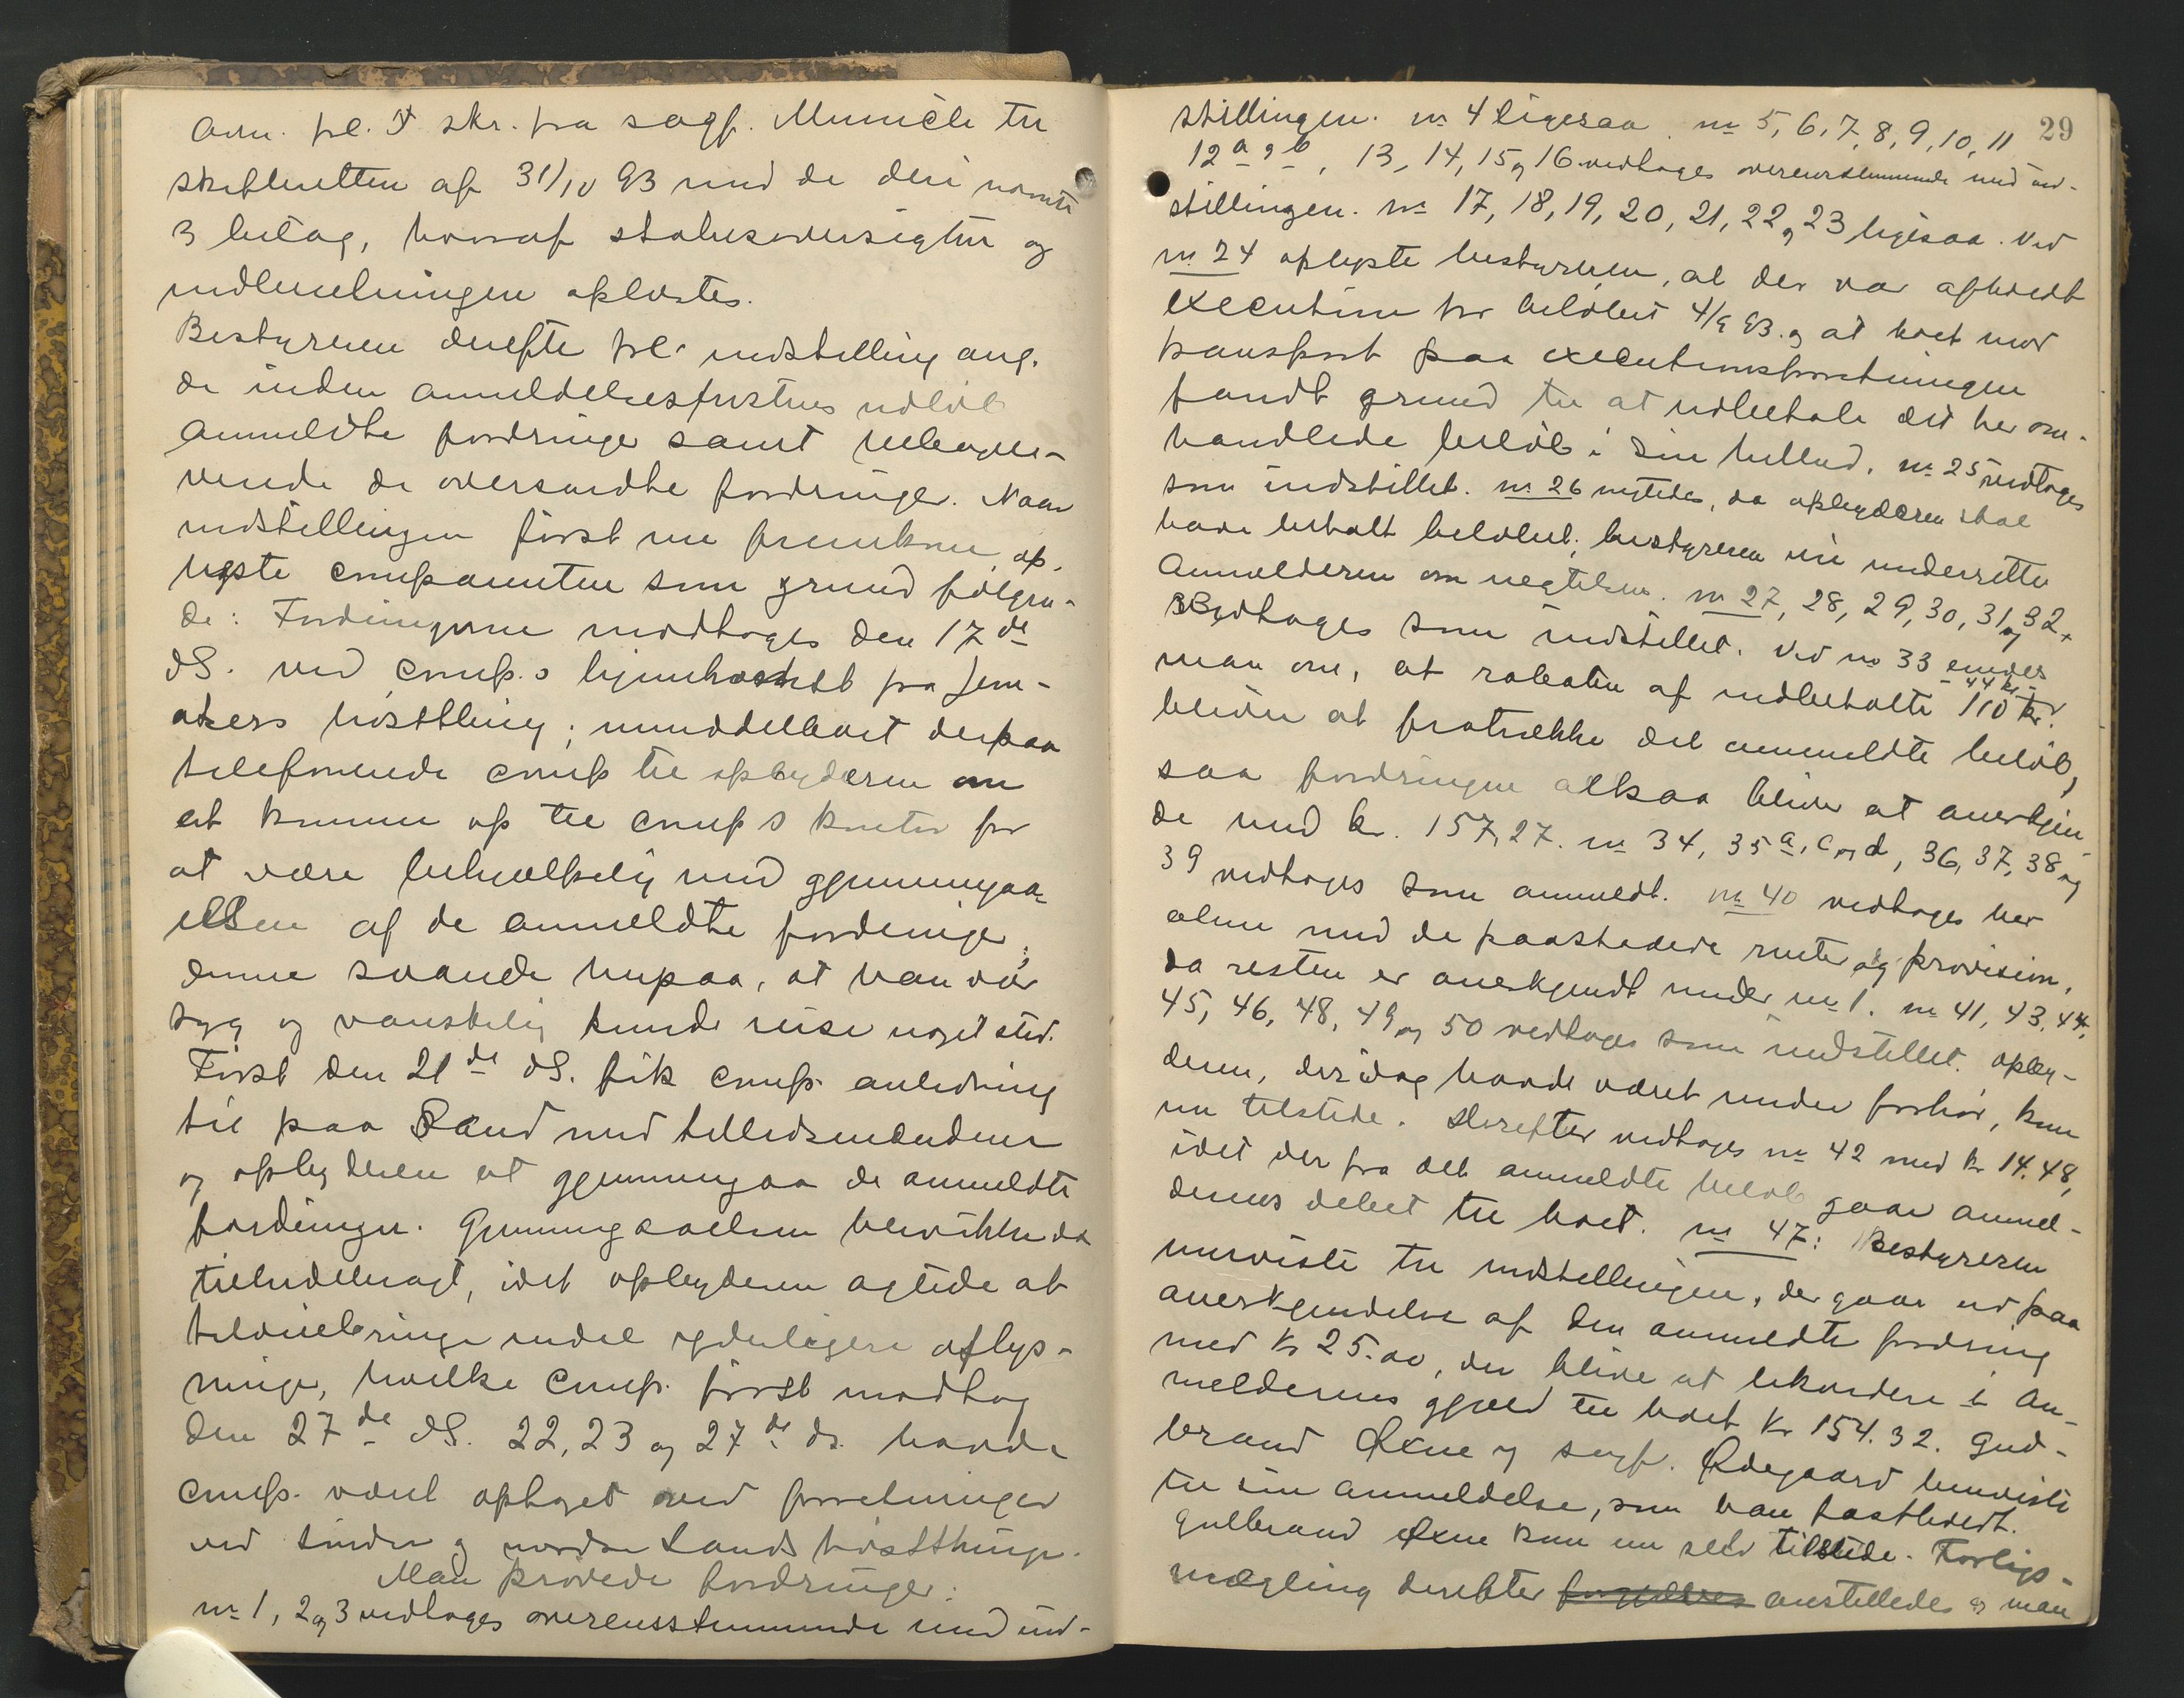 Adm. frl. I skr. fra sagf. Münich til
skifteretten af 31/10 93 med de deri nævnte
3 bilag, hvoraf statusoversigten og
indberetningen oplæstes.
Bestyreren derefter frl. indstilling ang.
de inden anmeldelsesfristens udløb
anmeldte fordringer samt tilbageleverede
de oversendte fordringer. Naar
indstillingen først nu fremkom, op-
lyste comparenten som grund følgen-
de: Fordringerne modtoges den 17de
ds. ved comp.s hjemkomst fra Jevn-
akers høstthing; umiddelbart derpaa
telefonerede comp til opbyderen om
at komme op til comp s kontor for
at være behjælpelig med gjennemgaa-
elsen af de anmeldte fordringer;
denne svarede herpaa, at han var
syg og vanskelig kunde reise noget sted.
Først den 21de ds. fik comp. anledning
til paa Sand med tillidsmændene
og opbyderen at gjennemgaa de anmeldte
fordringer. Gjennemgaaelsen blev ikke da
tilendebragt, idet opbyderen agtede at
tilveiebringe endel yderligere oplys-
ninger, hvilke comp. først modtog
den 27de ds. 22, 23 og 27de ds. havde
comp. været optaget ved forretninger
ved søndre og nordre Lands høstthinge.
Man prøvede fordringer:
no 1, 2 og 3 vedtoges overensstemmende med ind-
29
stillingen. no 4 ligesaa. no 5, 6, 7, 8, 9, 10, 11
12 a og b, 13, 14, 15 og 16 vedtoges overensstemmende med ind-
stillingen. no 17, 18, 19, 20, 21, 22 og 23 ligesaa. Ved
no 24 oplyste bestyreren, at der var afholdt
execution for beløbet 4/9 93. og at boet mod
transport paa executionsforretningen
fandt grund til at udbetale det her om-
handlede beløb i sin helhed. no 25 vedtoges
som indstillet. no 26 nægtedes, da opbyderen skal
have betalt beløbet; bestyreren vil underrette
Anmelderen om negtelsen. no 27, 28, 29, 30, 31 og 32
vedtoges som indstillet. Ved no 33 enedes
man om, at rabatten af indbetalte 110 kr. 44 kr
bliver at fratrække det anmeldte beløb,
saa fordringen altsaa bliver at anerkjen-
de med kr. 157,27. no 34, 35 a, c og d, 36, 37, 38 og
39 vedtoges som anmeldt. no 40 vedtoges her
alene med de paastaaede renter og provision,
da resten er anerkjendt under no 1. no 41, 43, 44,
45, 46, 48, 49 og 50 vedtoges som indstillet. opby-
deren, der idag havde været under forhør, kom
nu tilstede. Derefter vedtoges no 42 med kr 14.48,
idet der fra det anmeldte beløb gaar anmel-
derens debet til boet. no 47: Bestyreren
henviste til indstillingen, der gaar ud paa
anerkjendelse af den anmeldte fordring
med kr 25.00, der bliver at likvidere i An-
melderens gjæld til boet kr 154.32. Gud-
brand Øxne og sagf. Ødegaard henviste
til sin anmeldelse, som han fastholdt.
Gulbrand Øxne kom nu selv tilstede. Forligs-
mægling derefter anstilledes og man